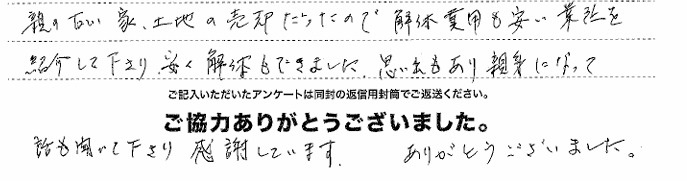 親の古い家、土地の売却だったので解体費用も安い業社を
紹介して下さり、安く解体もできました。思い出もあり親身になって
ご記入いただいたアンケートは同封の返信用封筒でご返送ください。
ご協力ありがとうございました。
話も聞いて下さり感謝しています。 ありがとうございました。